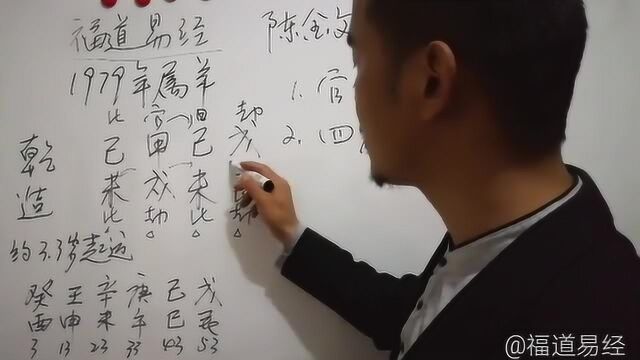 福道易经
陈
1979年属羊
1. 官
2. 四
比 官 日 劫
己 甲 己 戊
未 戌 未
比 劫 比 劫
乾造
约3.3岁起运
癸 壬 辛 庚 己 戊
酉 申 未 午 巳 辰
3 13 23 33 43 53
@福道易经